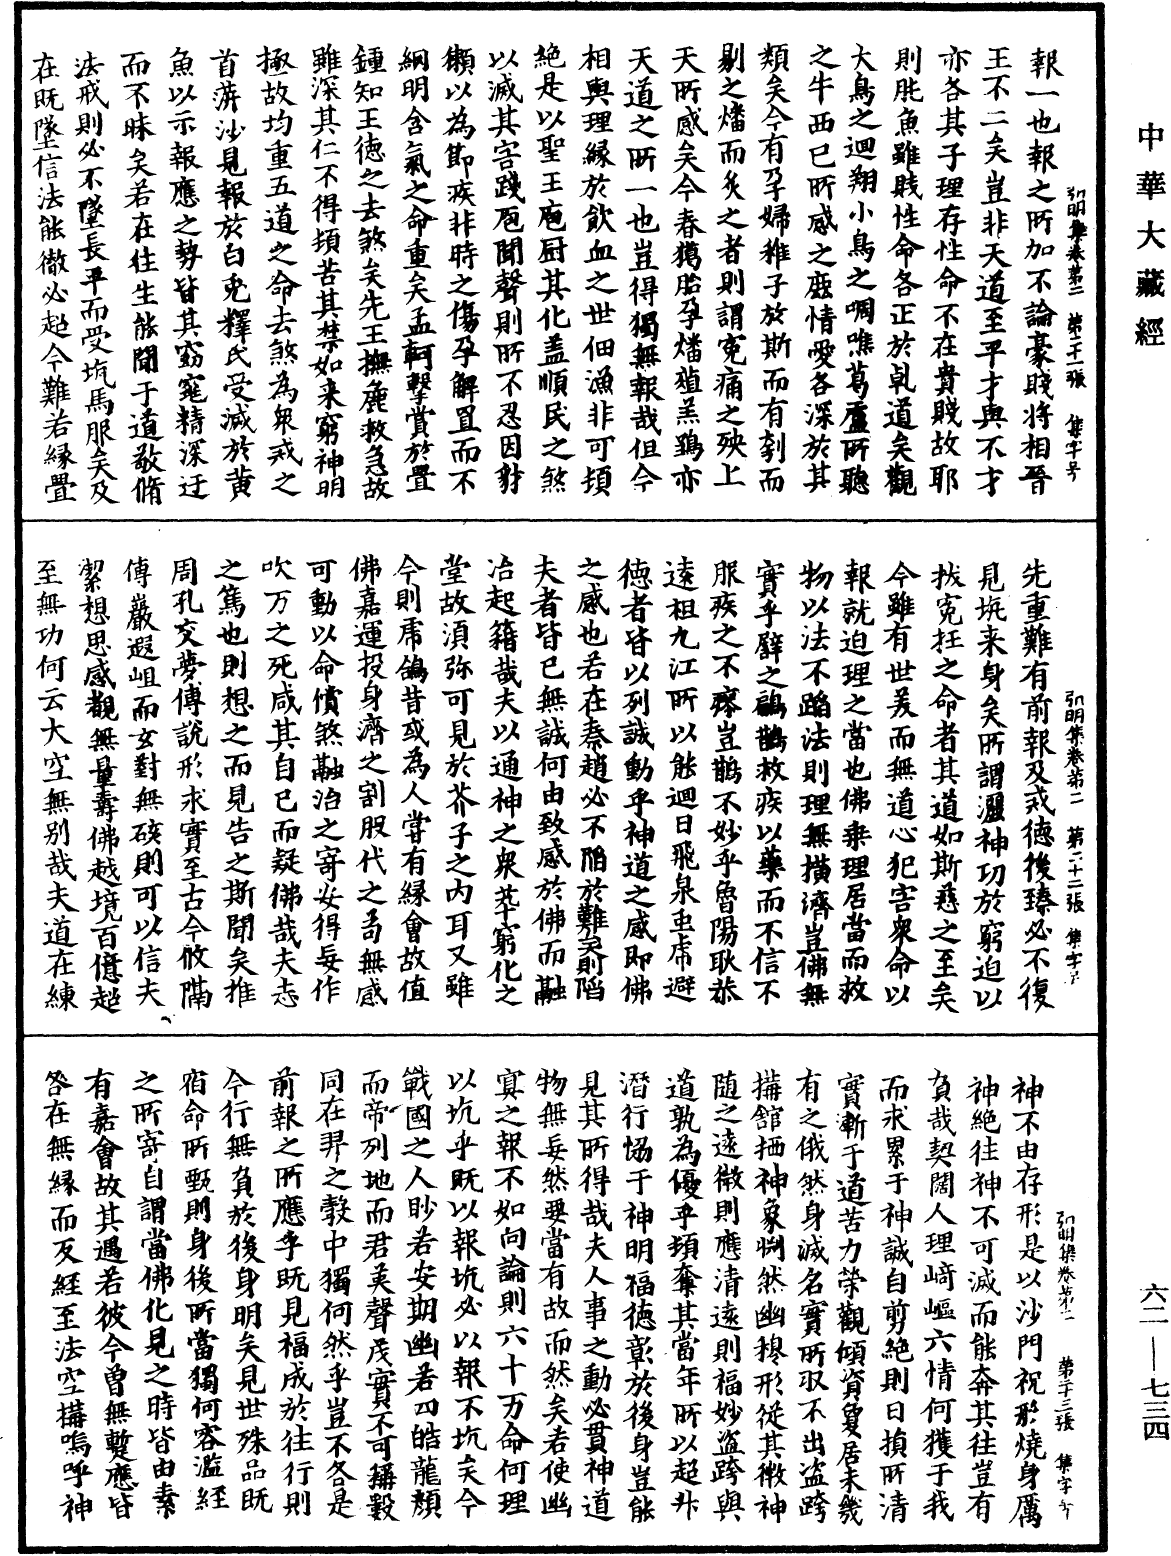 中華大藏經
報一也報之所加不論豪賤將相晉
弘明集卷第二 第二十一張 集字号
王不二矣豈非天道至平才與不才
亦各其子理存性命不在貴賤故耶
則肫魚雖賤性命各正於乹道矣觀
大鳥之迴翔小鳥之啁噍葛盧所聽
之牛西巴所感之麑情愛各深於其
類矣今有孕婦稚子於斯而有刳而
剔之燔而炙之者則謂寃痛之殃上
天所感矣今春獦胎孕燔葅羔鷃亦
天道之所一也豈得獨無報哉但今
相與理緣於飲血之世佃漁非可頓
絕是以聖王庖厨其化盖順民之煞
以滅其害踐庖聞聲則所不忍因豺
獺以為節疾非時之傷孕解罝而不
綱明含氣之命重矣孟軻擊賞於舋
鍾知王德之去煞矣先王撫麁救急故
雖深其仁不得頓苦其禁如来窮神明
極故均重五道之命去煞為衆戒之
首蓱沙見報於白兎釋氏受滅於黃
魚以示報應之勢皆其窈窕精深迂
而不昧矣若在往生能聞于道敬脩
法戒則必不墜長平而受坑馬服矣及
在既墜信法能徹必超今難若緣舋
先重難有前報及戒德後臻必不復
弘明集卷第二 第二十二張 集字号
見坑来身矣所謂灑神功於窮迫以
拔寃枉之命者其道如斯慈之至矣
今雖有世美而無道心犯害衆命以
報就迫理之當也佛乘理居當而救
物以法不蹈法則理無横濟豈佛無
實乎譬之鶣鵲救疾以藥而不信不
服疾之不瘳豈鵲不妙乎魯陽耿恭
遠祖九江所以能迴日飛泉虫虎避
德者皆以列誠動乎神道之感即佛
之感也若在秦趙必不陷於難矣則陷
夫者皆已無誠何由致感於佛而融
冶起籍哉夫以通神之衆萃窮化之
堂故湏弥可見於芥子之内耳又雖
今則虎鴿昔或為人嘗有緣會故值
佛嘉運投身濟之割股代之苟無感
可動以命償煞融治之寄安得妄作
吹万之死咸其自已而疑佛哉夫志
之篤也則想之而見告之斯聞矣推
周孔交夢傳說形求實至古今攸隔
傅巖遐岨而玄對無硋則可以信夫
潔想思感覩無量壽佛越境百億超
至無功何云大空無别哉夫道在練
神不由存形是以沙門祝形燒身厲
弘明集卷第二 第二十三張 集字号
神絕往神不可滅而能奔其往豈有
負哉契闊人理﨑嶇六情何獲于我
而求累于神誠自剪絕則日損所清
實漸于道苦力榮觀傾資夐居未幾
有之俄然身滅名實所収不出盜跨
搆舘栖神象㴠然幽穆形從其微神
随之遠微則應清遠則福妙盜跨與
道孰為優乎頓奪其當年所以超升
潛行恊于神明福德彰於後身豈能
見其所得哉夫人事之動必貫神道
物無妄然要當有故而然矣若使幽
寞之報不如向論則六十万命何理
以坑乎既以報坑必以報不坑矣今
戰國之人眇若安期幽若四皓龍顏
而帝列地而君英聲茂實不可稱數
同在羿之彀中獨何然乎豈不各是
前報之所應乎既見福成於往行則
今行無負於後身明矣見世殊品既
宿命所甄則身後所當獨何容濫經
之所寄自謂當佛化見之時皆由素
有嘉會故其遇若彼今曾無蹔應皆
咎在無緣而反經至法空搆嗚呼神
六二—七三四